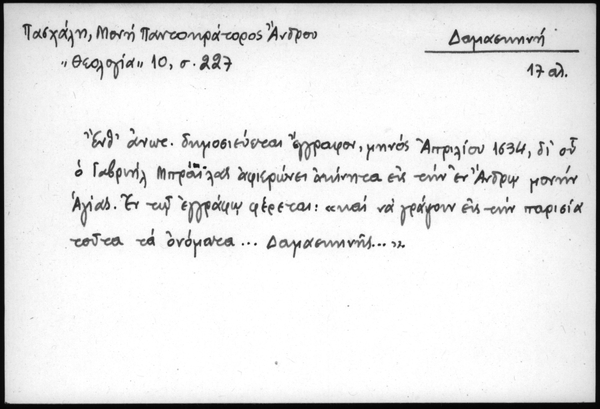 Πασχάλη, Μονή Παντοκράτορος Ἄνδρου
Δαμασκηνή
"Θεολογία" 10, σ. 227
17 αἰ.
Ἔνθ' ἀνωτ. δημοσιεύεται ἔγγραφον, μηνός Ἀπριλίου 1634, δι' οὗ
ὁ Γαβριήλ Μπραΐλας ἀφιερώνει ἀκίνητα εἰς τήν ἐν Ἄνδρῳ μονήν
Ἁγίας. Ἐν τῷ ἐγγράφῳ φέρεται: «καί νά γράφουν εἰς τήν παρισία
τοῦτα τά ὀνόματα... Δαμασκηνῆς...».